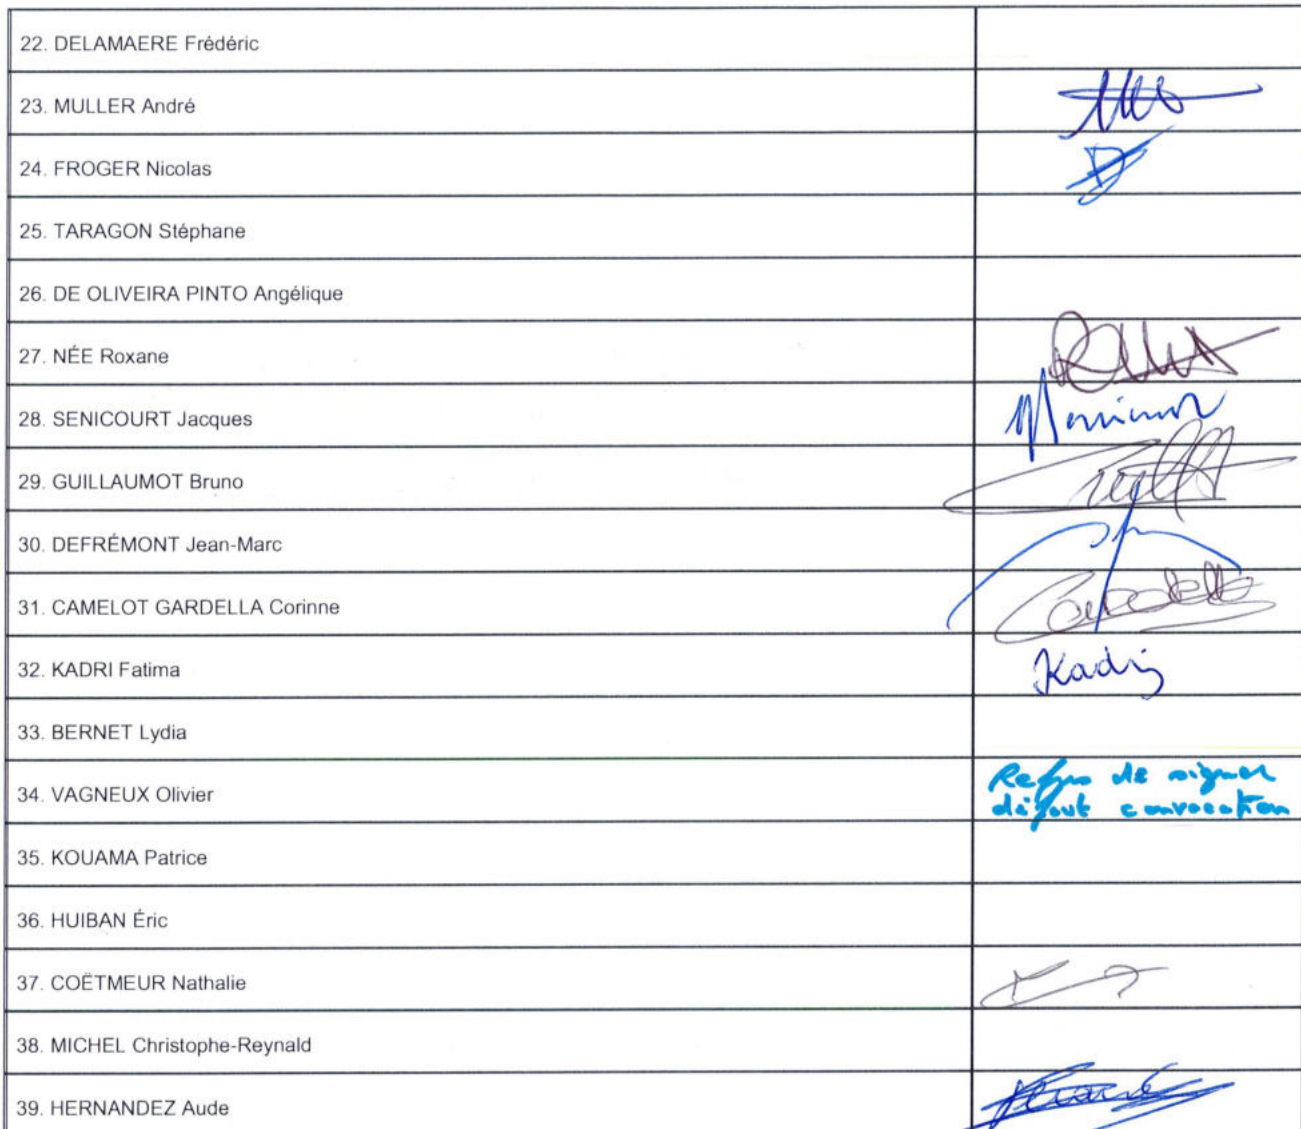 22. DELAMAERE Frédéric
23. MULLER André
24. FROGER Nicolas
25. TARAGON Stéphane
26. DE OLIVEIRA PINTO Angélique
27. NÉE Roxane
28. SENICOURT Jacques
29. GUILLAUMOT Bruno
30. DEFRÉMONT Jean-Marc
31. CAMELOT GARDELLA Corinne
32. KADRI Fatima
Kadri
33. BERNET Lydia
34. VAGNEUX Olivier
Refus de signer
défaut convocation
35. KOUAMA Patrice
36. HUIBAN Éric
37. COËTMEUR Nathalie
38. MICHEL Christophe-Reynald
39. HERNANDEZ Aude